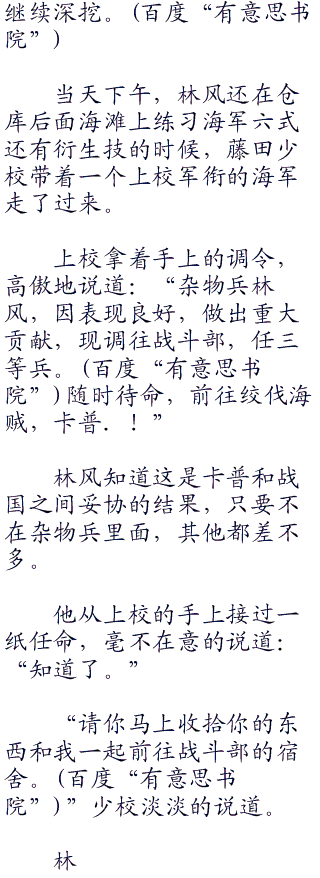 继续深挖。(百度“有意思书
院”)
当天下午，林风还在仓
库后面海滩上练习海军六式
还有衍生技的时候，藤田少
校带着一个上校军衔的海军
走了过来。
上校拿着手上的调令，
高傲地说道：“杂物兵林
风，因表现良好，做出重大
贡献，现调往战斗部，任三
等兵。(百度“有意思书
院”)随时待命，前往绞伐海
贼，卡普．！”
林风知道这是卡普和战
国之间妥协的结果，只要不
在杂物兵里面，其他都差不
多。
他从上校的手上接过一
纸任命，毫不在意的说道：
“知道了。”
“请你马上收拾你的东
西和我一起前往战斗部的宿
舍。(百度“有意思书
院”)”少校淡淡的说道。
林